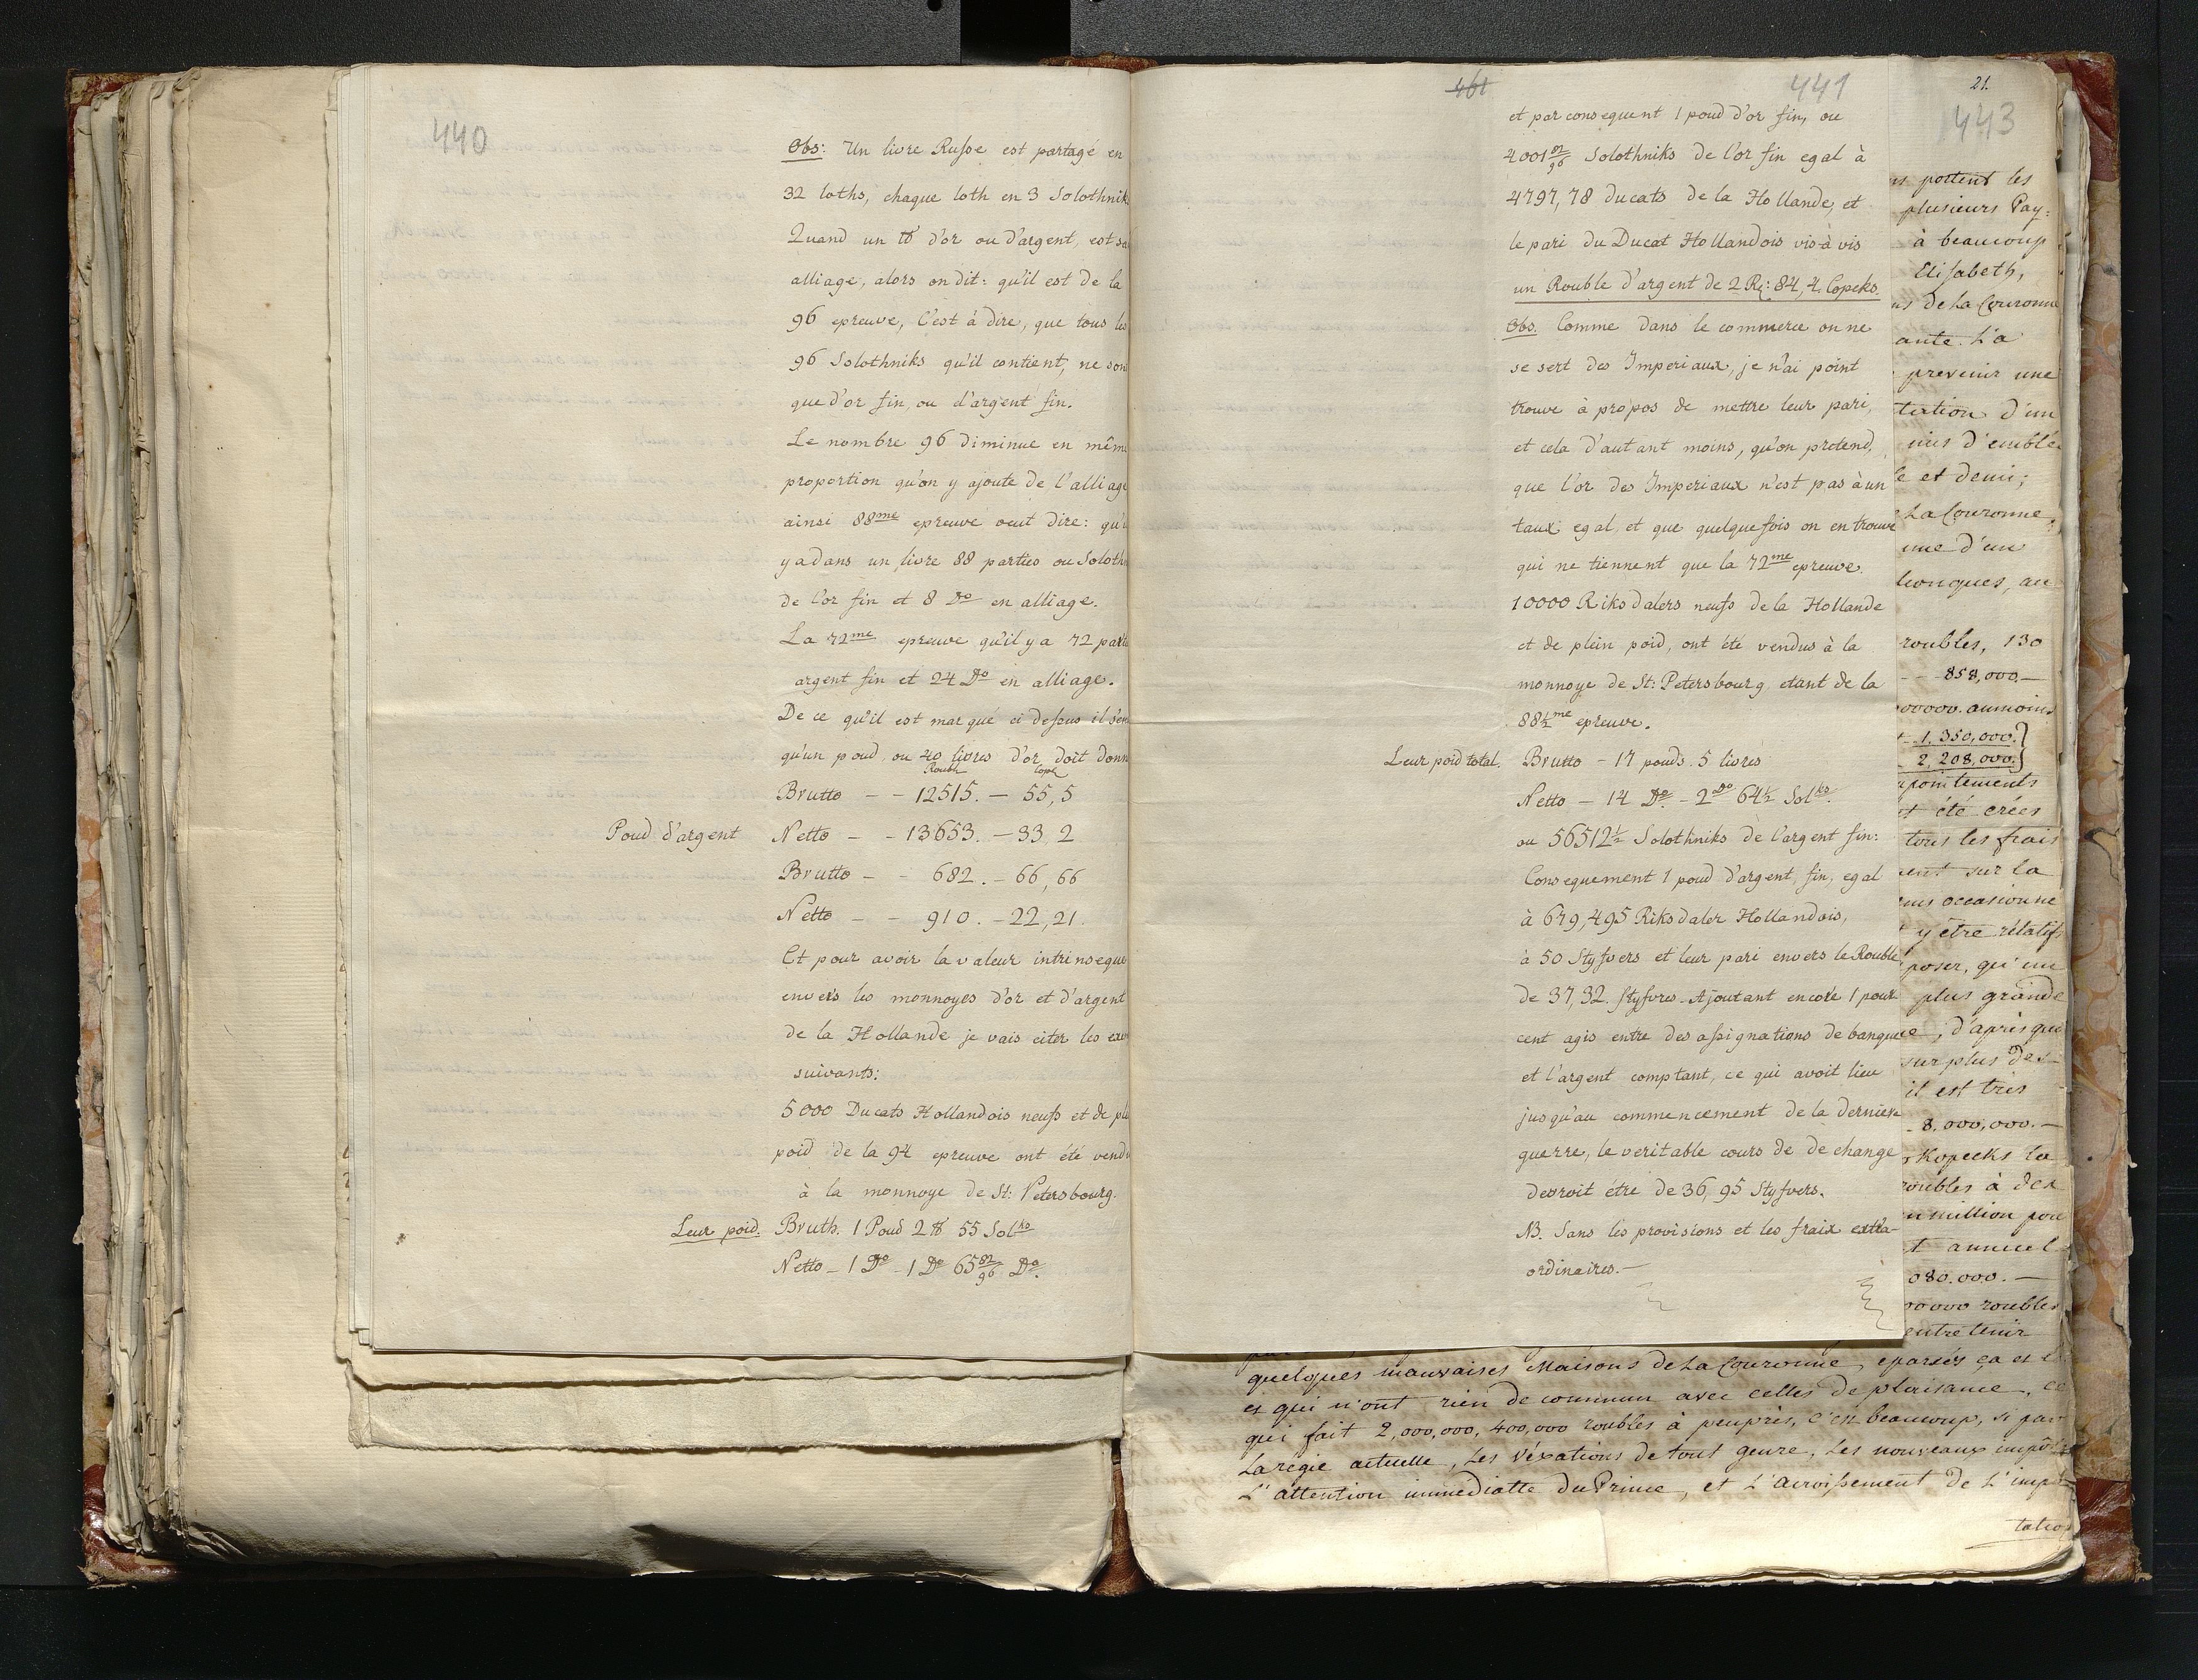 440
Obs: Un livre Russe est partagé en
32 loths, chaque loth en 3 Solothnik
Quand un ℔ d'or ou d'argent, est sa
alliage, alors on dit: qu'il est de la
96 epreuve, C'est à dire, que tous les
96 Solothniks qu'il contient, ne son
que d'or fin, ou d'argent fin.
Le nombre 96 diminue en mêm
proportion qu'on y ajoute de l'alliage
ainsi 88me epreuve veut dire: qu'i
y a dans un livre 88 parties ou Soloth
de l'or fin et 8 Do en alliage.
La 72me epreuve qu'il y a 72 part
argent fin et 24 Do en alliage.
De ce qu'il est marqué ci dessus il s'en
qu'un poud, ou 40 livres d'or, doit donn
Roubl Cop
Brutto - - 12515. - 55,5
Poud d'argent Netto - - 13653. - 33 2
Brutto - - 682. - 66,66
Netto - - 910. - 22,21.
Et pour avoir la valeur intrinseque
envers les monnoyes d'or et d'argent
de la Hollande je vais citer les exe
suivants:
5000 Ducats Hollandois neufs et de pl
poid de la 94 epreuve ont été vendu
à la monnoye de St: Petersbourg.
Leur poid. Bruth. 1 Poud 2 ℔ 55 Solks
Netto - 1 Do - 1 Do 65 82/96 Do.
461
441
et par consequent 1 poud d'or fin, ou
4001 82/96 Solothniks de l'or fin egal à
4797,78 ducats de la Hollande, et
le pari du Ducat Hollandois vis-à vis
un Rouble d'argent de 2 R: 84,4. Copeks.
Obs. Comme dans le commerce on ne
se sert des Imperiaux, je n'ai point
trouve à propos de mettre leur pari,
et cela d'autant moins, qu'on pretend,
que l'or des Imperiaux n'est pas à un
taux egal, et que quelquefois on en trouve
qui ne tiennent que la 72me epreuve.
10000 Riksdalers neufs de la Hollande
et de plein poid, ont été vendus à la
monnoye de St: Petersbourg etant de la
88½me epreuve.
Leur poid total. Brutto - 17 pouds. 5 livres
Netto - 14 Do. - 2 Do 64½ Solks.
ou 56512½ Solothniks de l'argent fin:
Consequement 1 poud d'argent, fin, egal
à 679,495 Riksdaler Hollandois,
à 50 Styfvers et leur pari envers le Rouble
de 37,32. Styfvres. Ajoutant encore 1 pour
cent agis entre des assignations de banque
et l'argent comptant, ce qui avoit lieu
jusqu'au commencement de la derniere
guerre, le veritable cours de de change
devroit étre de 36,95 Styfvers.
NB. Sans les provisions et les fraix extra-
ordinaires.-
21.
443
portent les
plusieurs Pay:
à beaucoup
Elisabeth,
de la Couronne
ante. La
prevenir une
tation d'un
d'emblée
le et demi;
La Couronne
une d'un
longues, au
roubles, 130
-- 858,000.-
00000. aumoins
1,350,000.
2,208,000.
pointements
et été crées
tous les frais
ent sur la
occasionne
y être rélatifs
poser, qu'un
plus grande
e, d'après que
surplus des
il est tres
8,000,000.-
Kopeeks la
roubles à des
million pou
t annuel
080.000.-
00000 roubles
entretenir
quelques mauvaises Maisons de La Couronne, eparses ça et
et qui n'ont rien de commun avec celles de plaisance, ce
qui fait 2,000,000,400,000 roubles à peuprès, c'est beaucoup, si par
La régie actuelle, Les Véxations de tout genre, Les nouveaux impôts
L'attention immédiatte du Prince, et L'acroissement de L'impo
tation